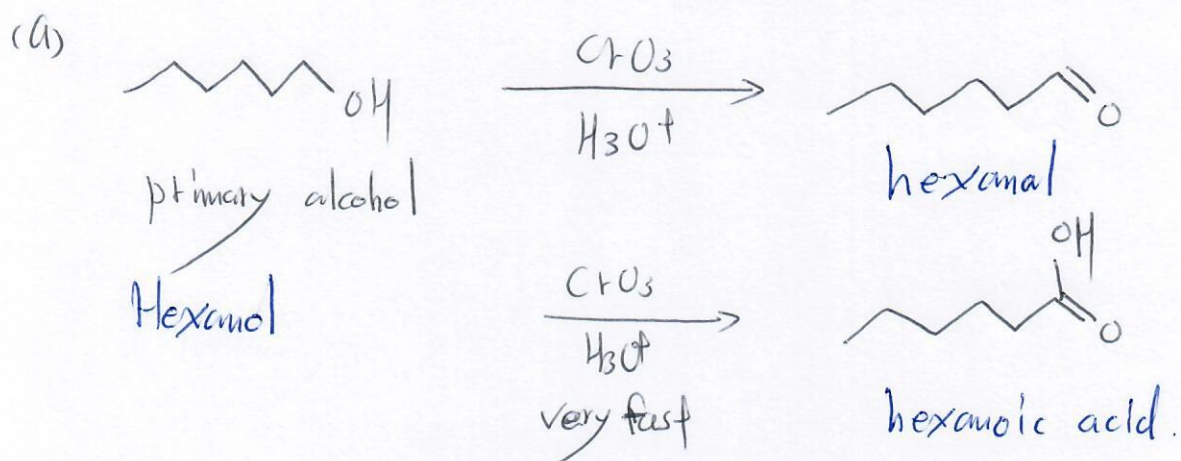 (a)
CrO3
OH
H3O+
O
primary alcohol
hexanal
OH
Hexanol
CrO3
H3O+
O
very fast
hexanoic acid.